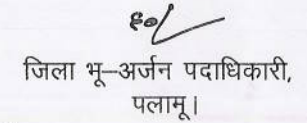 ह०/
जिला भू–अर्जन पदाधिकारी,
पलामू।